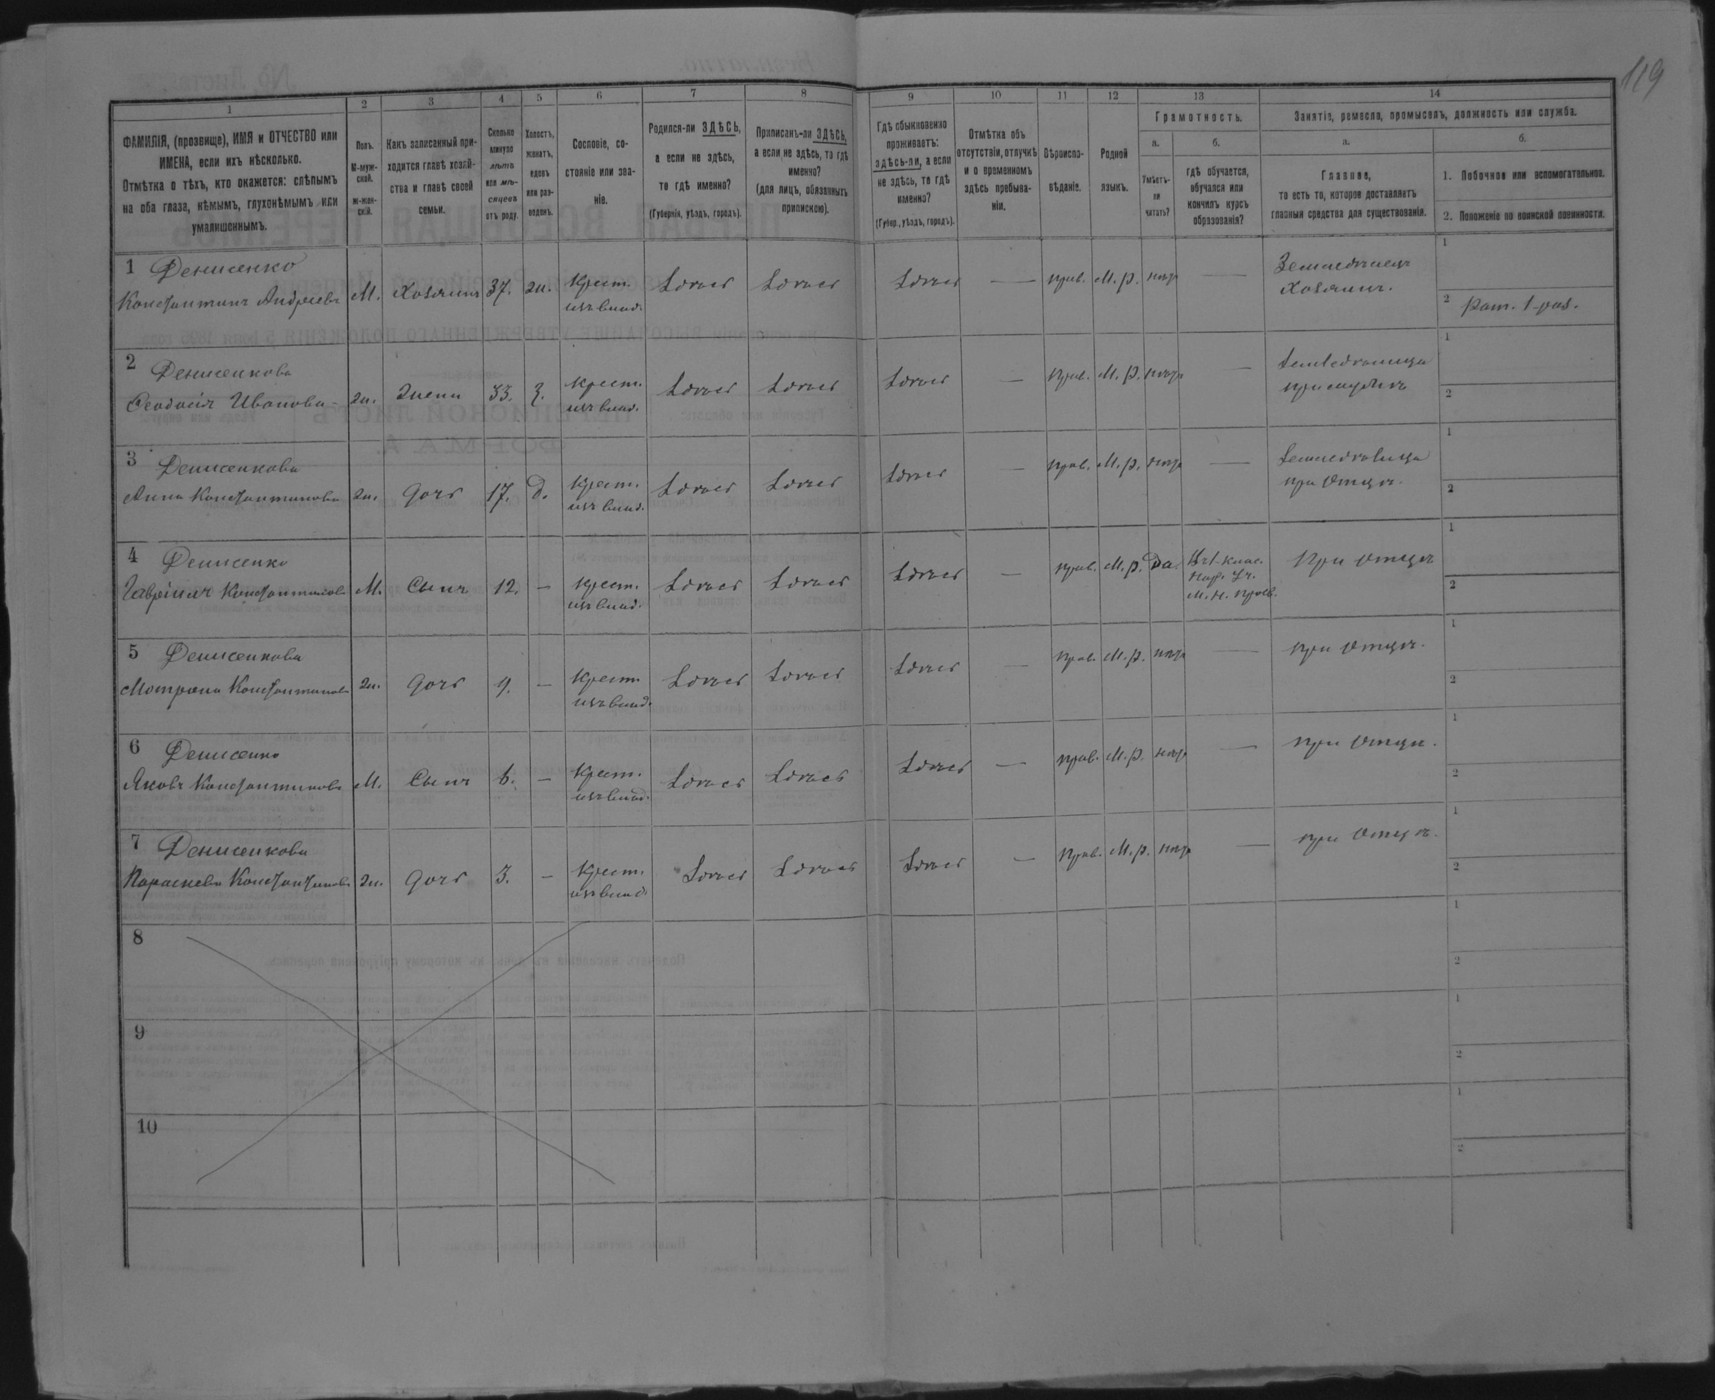 119
1
2
3
4
5
6
7
8
9
10
11
12
13
14
ФАМИЛІЯ, (прозвище), ИМЯ и ОТЧЕСТВО или
ИМЕНА, если ихъ нѣсколько.
Отмѣтка о тѣхъ, кто окажется: слѣпымъ
на оба глаза, нѣмымъ, глухонѣмымъ или
умалишеннымъ.
Полъ.
М-муж-
ской.
Ж-жен-
скій.
Какъ записанный при-
ходится главѣ хозяй-
ства и главѣ своей
семьи.
Сколько
минуло
лѣтъ
или мѣ-
сяцевъ
отъ роду.
Холостъ,
женатъ,
вдовъ
или раз-
веденъ.
Сословіе, со-
стояніе или зва-
ніе.
Родился-ли ЗДѢСЬ,
а если не здѣсь,
то гдѣ именно?
(Губернія, уѣздъ, городъ).
Приписанъ-ли ЗДѢСЬ,
а если не здѣсь, то гдѣ
именно?
(для лицъ, обязанныхъ
припиской).
Гдѣ обыкновенно
проживаетъ:
здѣсь-ли, а если
не здѣсь, то гдѣ
именно?
(Губер., уѣздъ, городъ).
Отмѣтка объ
отсутствіи, отлучкѣ
и о временномъ
здѣсь пребыва-
ніи.
Вѣроиспо-
вѣданіе.
Родной
языкъ.
Грамотность.
а.
Умѣетъ-
ли
читать?
б.
гдѣ обучается,
обучался или
кончилъ курсъ
образованія?
Занятіе, ремесло, промыселъ, должность или служба.
а.
Главное,
то есть то, которое доставляетъ
главныя средства для существованія.
б.
1. Побочное или вспомогательное.
2. Положеніе по воинской повинности.
1 Денисенко
Константинъ Андреевъ М. Хозяинъ 37. ж. Крест. изъ влад. Здѣсь Здѣсь Здѣсь — прав. М.р. нѣтъ — Земледѣлецъ Хозяинъ. 1
2 Рат. 1 раз.
2 Денисенкова
Ѳеодосія Иванова ж. Жена 33. З. Крест. изъ влад. Здѣсь Здѣсь Здѣсь — прав. М.р. нѣтъ — Земледѣлица при мужѣ 1
2
3 Денисенкова
Анна Константинова ж. Дочь 17. Д. Крест. изъ влад. Здѣсь Здѣсь Здѣсь — прав. М.р. нѣтъ — Земледѣлица при отцѣ. 1
2
4 Денисенко
Гавріилъ Константиновъ М. Сынъ 12. — Крест. изъ влад. Здѣсь Здѣсь Здѣсь — прав. М.р. Да клас. Нар. Уч. М. Н. Просв. При отцѣ 1
2
5 Денисенкова
Мотрона Константинова ж. Дочь 9. — Крест. изъ влад. Здѣсь Здѣсь Здѣсь — прав. М.р. нѣтъ — при отцѣ. 1
2
6 Денисенко
Яковъ Константиновъ М. Сынъ 6. — Крест. изъ влад. Здѣсь Здѣсь Здѣсь — прав. М.р. нѣтъ — при отцѣ. 1
2
7 Денисенкова
Параскева Константинова ж. Дочь 3. — Крест. изъ влад. Здѣсь Здѣсь Здѣсь — прав. М.р. нѣтъ — при отцѣ. 1
2
8 1
2
9 1
2
10 1
2